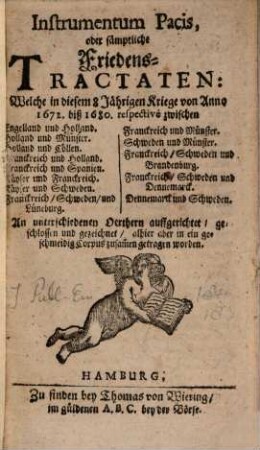 Instrumentum Pacis,
oder sämptliche
Friedens-
TRACTATEN:
Welche in diesem 8 Jährigen Kriege von Anno
1672. biß 1680. respectivè zwischen
Engelland und Holland.
Holland und Münster.
Holland und Cöllen.
Franckreich und Holland.
Franckreich und Spanien.
Käyser und Franckreich.
Käyser und Schweden.
Franckreich / Schweden / und
Lüneburg.
Franckreich und Münster.
Schweden und Münster.
Franckreich / Schweden und
Brandenburg.
Franckreich / Schweden und
Dennemarck.
Dennemarck und Schweden.
An unterschiedenen Oerthern auffgerichtet / ge-
schlossen und gezeichnet / alhier aber in ein ge-
schmeidig Corpus zusamen getragen worden.
J Publ. Eu
HAMBURG,
Zu finden bey Thomas von Wiering /
im güldenen A. B. C. bey der Börse.